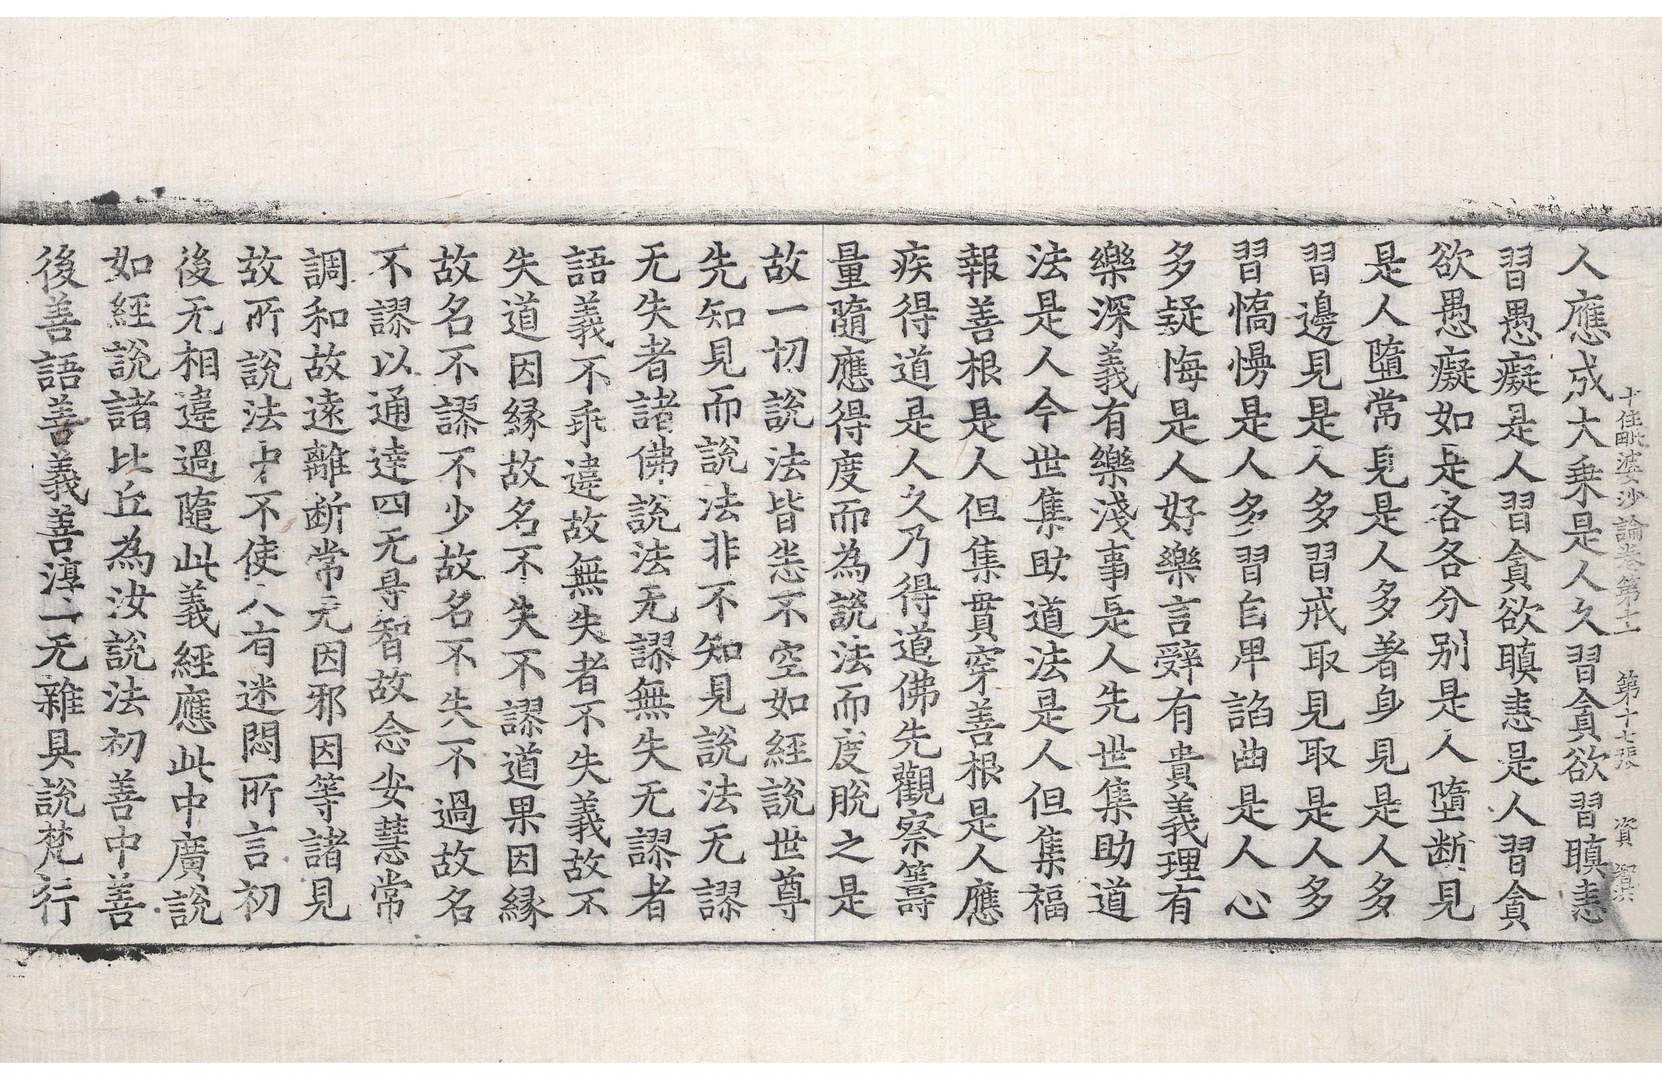 十住毗婆沙論卷第十一 第十七張 資
人應成大乘是人久習貪欲習瞋恚
習愚癡是人習貪欲瞋恚是人習貪
欲愚癡如是各各分別是人墮斷見
是人墮常見是人多著身見是人多
習邊見是人多習戒取見取是人多
習憍慢是人多習自卑諂曲是人心
多疑悔是人好樂言辭有貴義理有
樂深義有樂淺事是人先世集助道
法是人今世集助道法是人但集福
報善根是人但集貫穿善根是人應
疾得道是人久乃得道佛先觀察籌
量隨應得度而為說法而度脫之是
故一切說法皆悉不空如經說世尊
先知見而說法非不知見說法无謬
无失者諸佛說法无謬無失无謬者
語義不乖違故無失者不失義故不
失道因緣故名不失不謬道果因緣
故名不謬不少故名不失不過故名
不謬以通達四无㝵智故念安慧常
調和故遠離斷常无因邪因等諸見
故所說法中不使人有迷悶所言初
後无相違過隨此義經應此中廣說
如經說諸比丘為汝說法初善中善
後善語善義善淳一无雜具說梵行